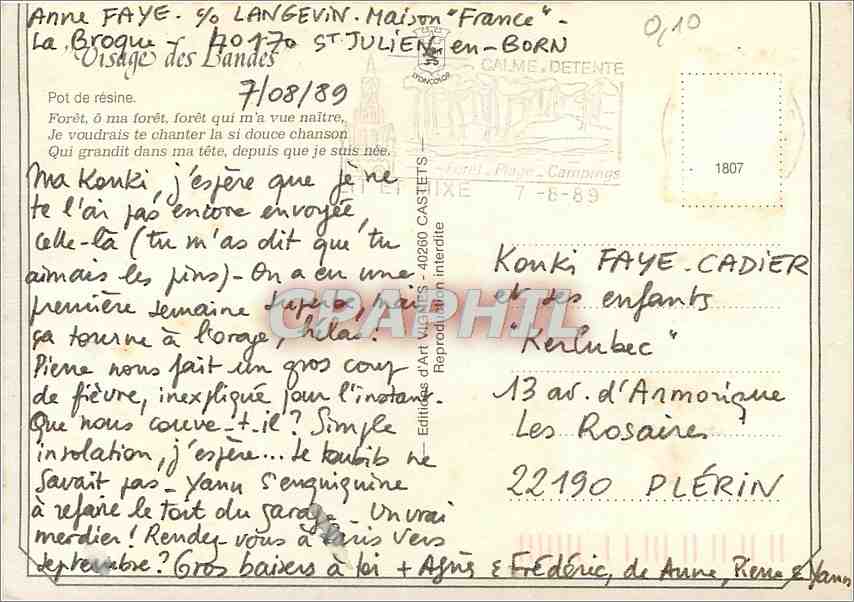 Anne FAYE. c/o LANGEVIN. Maison "France" -
La Broque - 40170 ST JULIEN en-BORN
0,10
Visage des Landes
LYONCOLOR
CALME. DETENTE
7/08/89
Pot de résine.
Forêt, ô ma forêt, forêt qui m'a vue naître,
Je voudrais te chanter la si douce chanson
Qui grandit dans ma tête, depuis que je suis née.
Forêt - Plage - Campings
ET MIXE 7 -8-89
1807
Ma Konki, j'espère que je ne
te l'ai pas encore envoyée,
celle-là (tu m'as dit que tu
aimais les pins) - On a eu une
première semaine superbe, mais
ça tourne à l'orage, hélas!
Pierre nous fait un gros coup
de fièvre, inexpliqué pour l'instant.
Que nous couve-t-il? Simple
insolation, j'espère... Le toubib ne
savait pas - Yann s'enquiquine
à refaire le toit du garage - Un vrai
merdier! Rendez-vous à Paris vers
septembre? Gros baisers à toi + Agnès & Frédéric, de Anne, Pierre & Yann
Editions d'Art VIGNES - 40260 CASTETS
Reproduction interdite
CPAPHIL
Konki FAYE-CADIER
et ses enfants
"Kerlubec"
13 av. d'Armorique
Les Rosaires
22190 PLÉRIN